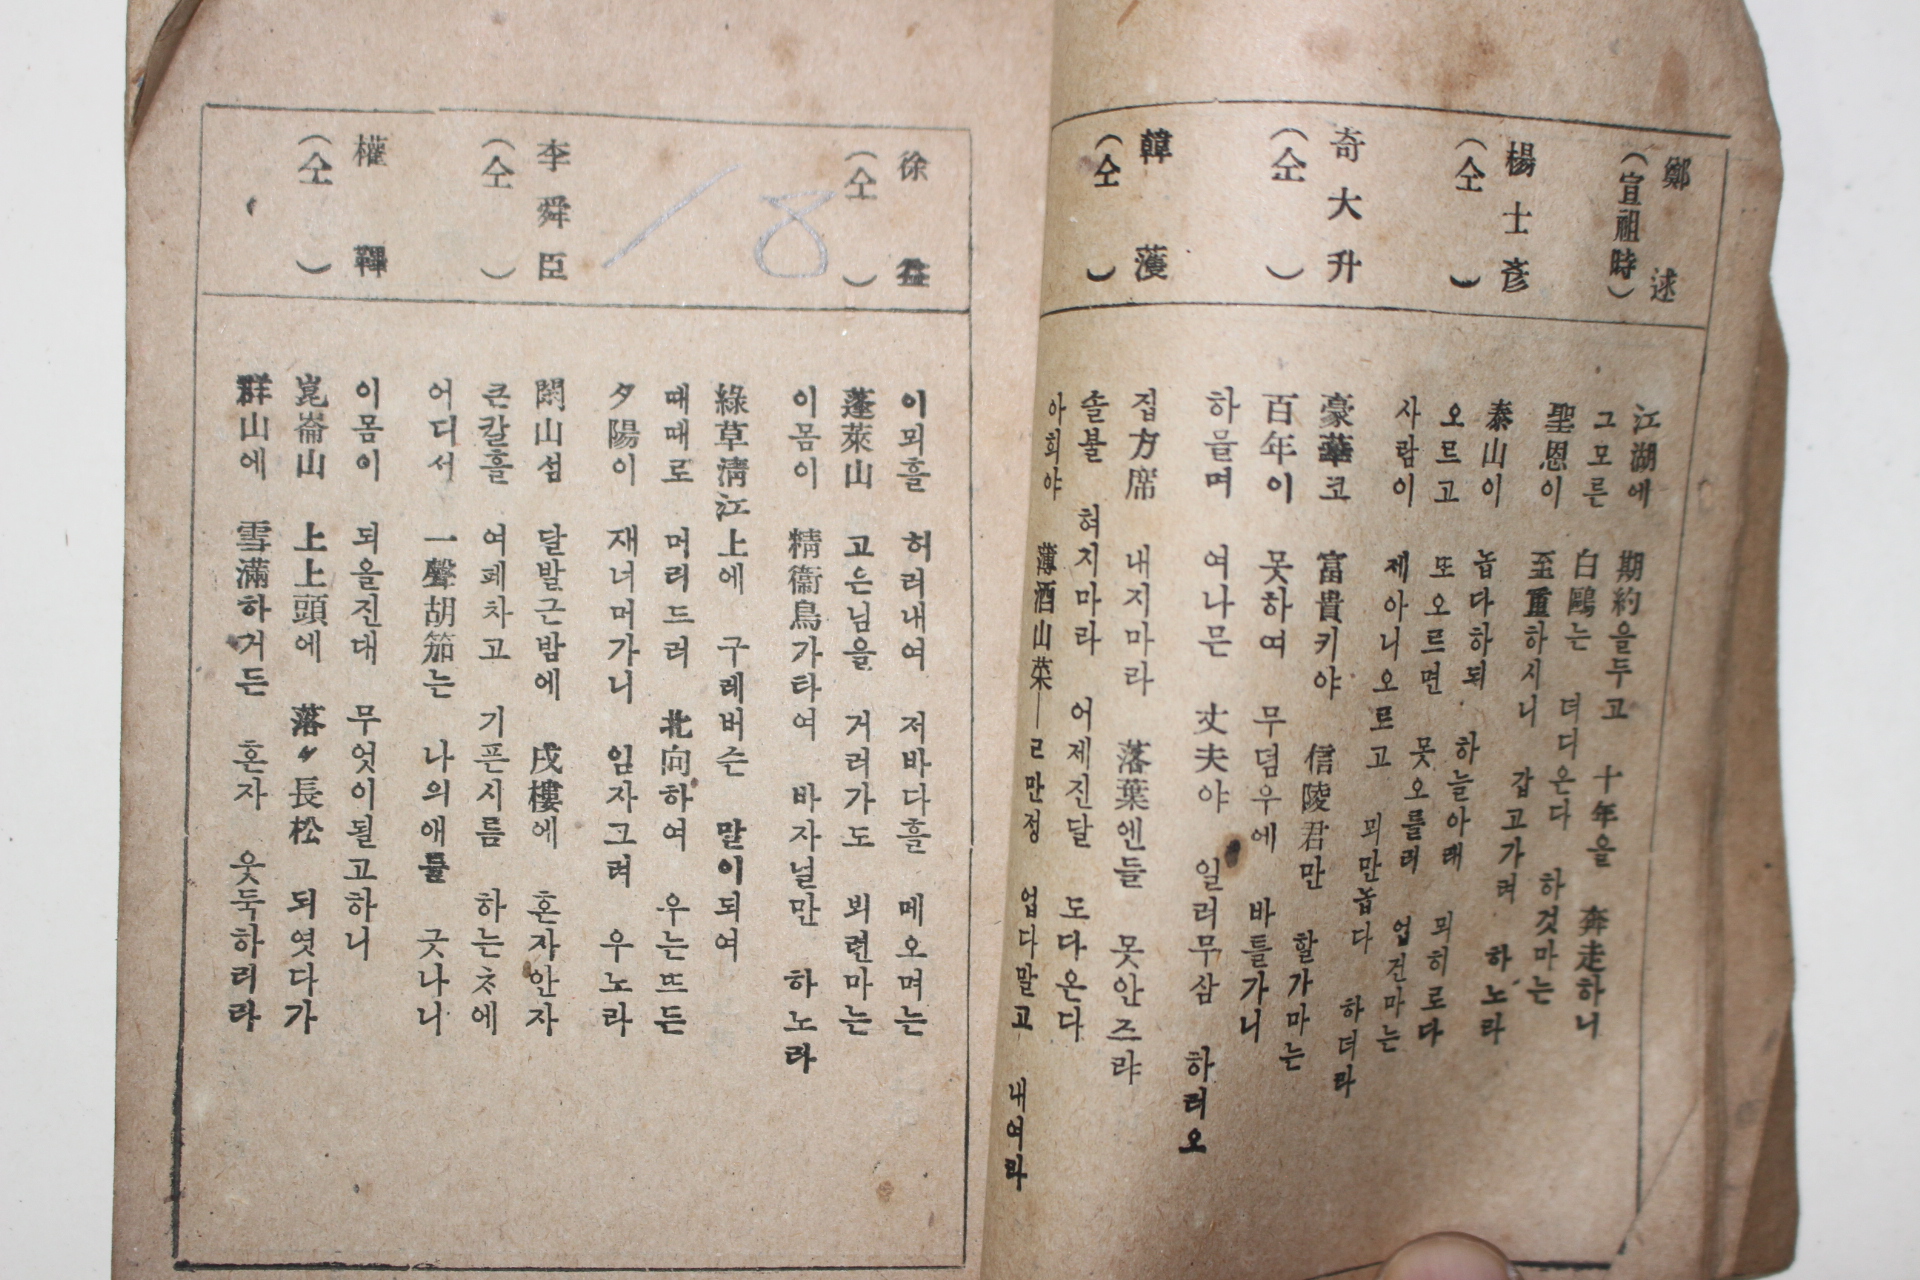 鄭 逑
(宣祖時)
江湖에 期約을두고 十年을 奔走하니
그모른 白鷗는 더디온다 하것마는
聖恩이 至重하시니 갑고가려 하노라
楊士彦
(仝 )
泰山이 놉다하되 하늘아래 뫼히로다
오르고 또오르면 못오를려 업건마는
사람이 제아니오르고 뫼만놉다 하더라
奇大升
(仝 )
豪華코 富貴키야 信陵君만 할가마는
百年이 못하여 무덤우에 바틀가니
하믈며 여나믄 丈夫야 일러무삼 하리오
韓 濩
(仝 )
집方席 내지마라 落葉엔들 못안즈랴
솔불 혀지마라 어제진달 도다온다
아희야 薄酒山菜ㅣㄹ만정 업다말고 내여라
徐 益
(仝 )
이뫼흘 허러내여 저바다흘 메오며는
蓬萊山 고은님을 거러가도 뵈련마는
이몸이 精衛鳥가타여 바자널만 하노라
綠草淸江上에 구레버슨 말이되여
때때로 머리드러 北向하여 우는뜨든
夕陽이 재너머가니 임자그려 우노라
李舜臣
(仝 )
閑山섬 달발근밤에 戍樓에 혼자안자
큰칼흘 여페차고 기픈시름 하는次에
어디서 一聲胡笳는 나의애를 긋나니
權 韠
(仝 )
이몸이 되올진대 무엇이될고하니
崑崙山 上上頭에 落〃長松 되엿다가
群山에 雪滿하거든 혼자 웃둑하리라
18